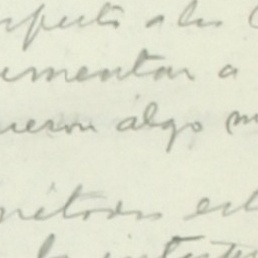 respecto a los
umentar a
ueron algo m
métodos est